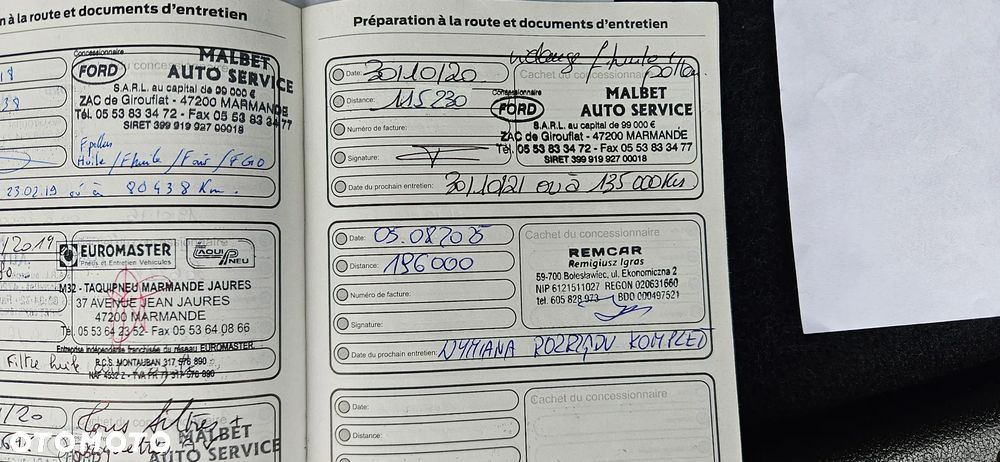 n à la route et documents d'entretien
Concessionnaire
FORD
MALBET
AUTO SERVICE
S.A.R.L. au capital de 99 000 €
ZAC de Girouflat - 47200 MARMANDE
Tél. 05 53 83 34 72 - Fax 05 53 83 34 77
SIRET 399 919 927 00018
Huile / Fhuile /
23.02.19 où à 80438 Km.
/2019
EUROMASTER
Pneus et Entretien Véhicules
TAQUI PNEU
M32 - TAQUIPNEU MARMANDE JAURES
37 AVENUE JEAN JAURES
47200 MARMANDE
Tél. 05 53 64 23 52 - Fax 05 53 64 08 66
Entreprise indépendante franchisée du réseau EUROMASTER
R.C.S. MONTAUBAN 317 978 890
Filtre huile
/20
Tous filtres +
MALBET
FORD
AUTO SERVICE
OTOMOTO
Préparation à la route et documents d'entretien
vidange / huile
Date: 30/10/20
Cachet du concessionnaire
Distance: 115230
Concessionnaire
FORD
MALBET
AUTO SERVICE
Numéro de facture:
S.A.R.L. au capital de 99 000 €
ZAC de Girouflat - 47200 MARMANDE
Tél. 05 53 83 34 72 - Fax 05 53 83 34 77
SIRET 399 919 927 00018
Signature:
Date du prochain entretien: 30/10/21 ou à 135 000 Kms
Date: 05.08.2025
Cachet du concessionnaire
Distance: 196000
REMCAR
Remigiusz Igras
59-700 Bolesławiec, ul. Ekonomiczna 2
NIP 6121511027 REGON 020631660
tel. 605 828 973 BDO 000497521
Numéro de facture:
Signature:
Date du prochain entretien: WYMIANA ROZRZĄDU KOMPLET
Date:
Cachet du concessionnaire
Distance: